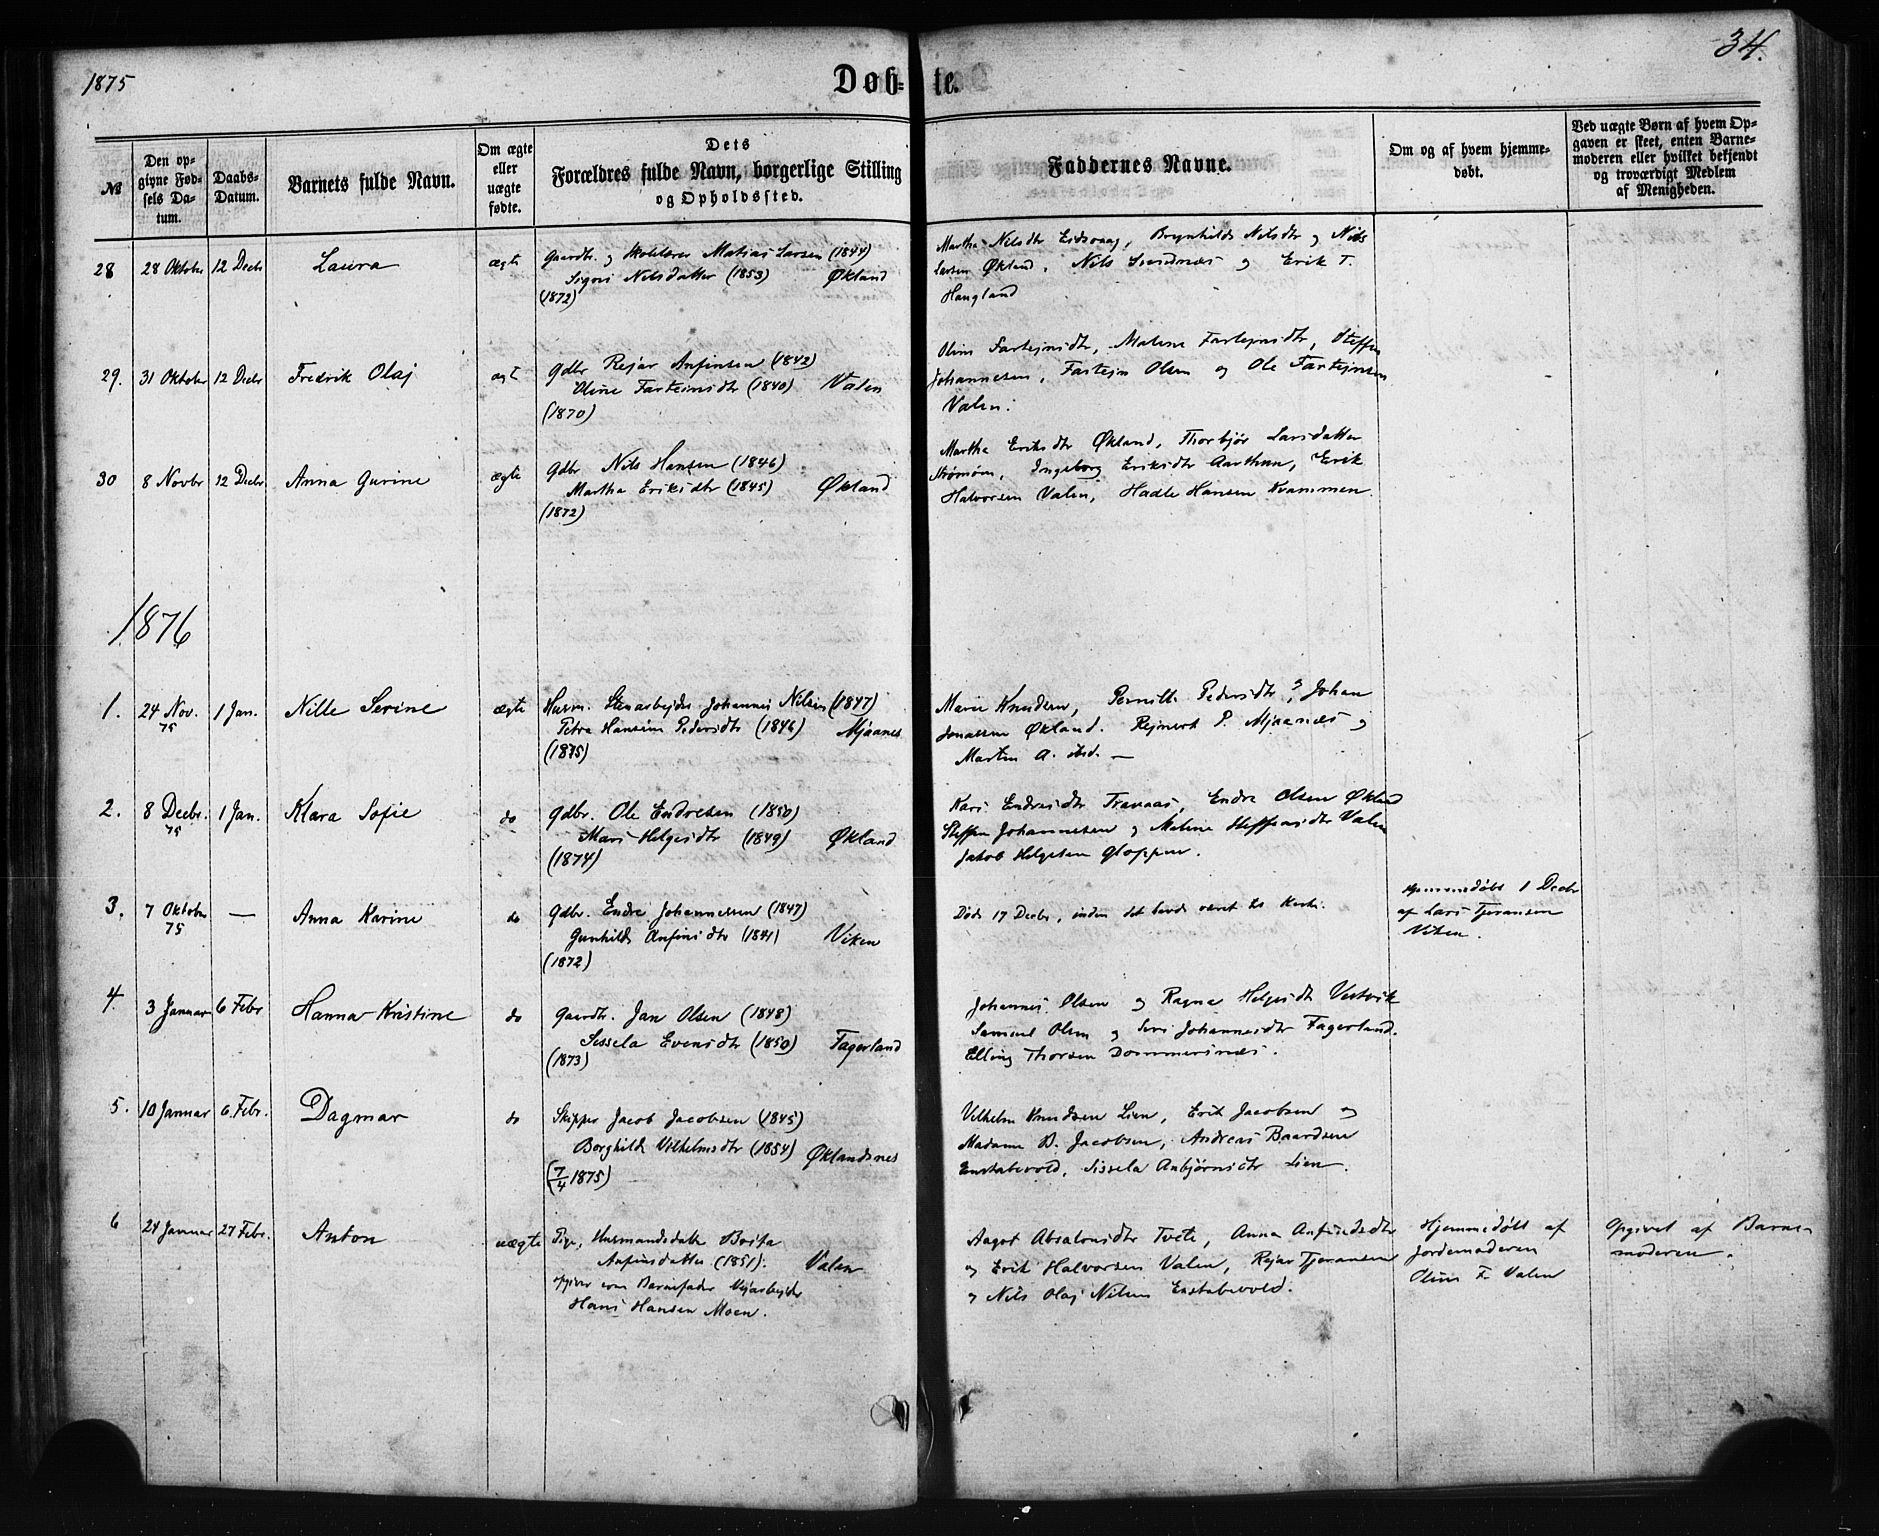 1875 Døb- te. 34.
№
Den op-
givne Fød-
sels Da-
tum.
Daabs-
Datum.
Barnets fulde Navn.
Om ægte
eller
uægte
fødte.
Dets
Forældres fulde Navn, borgerlige Stilling
og Opholdssted.
Faddernes Navne.
Om og af hvem hjemme-
døbt.
Ved uægte Børn af hvem Op-
gaven er skeet, enten Barne-
moderen eller hvilket bekjendt
og troværdigt Medlem
af Menigheden.
28 28 Oktober 12 Decbr Laura ægte
Gaardbr. og Skolelærer Matias Larsen (1844)
Sigri Nilsdatter (1853) Økland
(1872)
Martha Nilsdtr Eidsvaag, Brynhilde Nilsdtr og Nils
Larsen Økland. Nils og Erik T.
Haugland
29. 31 Oktober 12 Decbr Fredrik Olaj ægt
Gdbr Rejar Anfinsen (1842)
Oline Fartejnsdtr (1840) Valen
(1870)
Oline Fartejnsdtr, Malene Fartejnsdtr, Steffen
Johannesen, Fartejn Olsen og Ole Fartejnsen
Valen.
30 8 Novbr 12 Decbr Anna Gurine ægte
Gdbr Nils Hansen (1846)
Martha Eriksdtr (1845) Økland
(1872)
Martha Eriksdtr Økland, Thorbjør Larsdatter
Strømøen, Ingeborg Eriksdtr Aarthun, Erik
Halvorsen Valen, Hadle Hansen Kvammen.
1876
1. 24 Nov. 75 1 Jan. Nille Serine ægte
Husm. Stenarbejder Johannes Nilsen (1847)
Petra Hansine Pedersdtr (1846) Mjaanes
(1875)
Marie Knudsen, Pernille Pedersdtr, Johan
Jonassen Økland. Rejnert P. Mjaanæs og
Martin A. ibid. —
2. 8 Decbr. 75 1 Jan. Klara Sofie do
Gdbr. Ole Endresen (1850)
Mari Helgesdtr (1849) Økland
(1874)
Kari Endresdtr Tranaas, Endre Olsen Økland
Steffen Johannesen og Malene Steffensdtr Valen
Jakob Helgesen Gloppen.
3. 7 Oktober 75 — Anna Karine do
Gdbr. Endre Johannesen (1847)
Gunhilde Anfinsdtr (1841) Viken
(1872)
Død 17 Decbr, inden det havde været til Kirke.
Hjemmedøbt 1 Decbr
af Lars Tjeransen
Viken.
4. 3 Januar 6 Febr Hanna Kristine do
Gaardbr. Jan Olsen (1848)
Sissela Evensdtr (1850) Fagerland
(1873)
Johannes Olsen og Ragna Helgesdtr Vestvik
Samuel Olsen og Siri Johannesdtr Fagerland.
Elling Thorsen Dommersnæs.
5. 10 Januar 6. Febr. Dagmar do
Skipper Jacob Jacobsen (1845)
Borghilde Vilhelmsdtr (1854) Øklandsnes
(7/4 1875)
Vilhelm Knudsen Lien, Erik Jacobsen og
Madame B. Jacobsen, Andreas Baardsen
Enstabevold, Sissela Anbjørnsdtr Lien.
6 24 Januar 27 Febr. Anton uægte
Pige, Husmandsdatter
Anfinsdatter (1851). Valen
opgiver som Barnefader Vejarbejder
Hans Hansen Moen.
Aagot Absalonsdtr Tvete, Anna Anfindsdtr
og Erik Halvorsen Valen, Rejar Tjeransen
og Nils Olaj Nilsen Enstabevold.
Hjemmedøbt af
Jordemoderen
Oline F. Valen
Opgivet af Barne-
moderen.